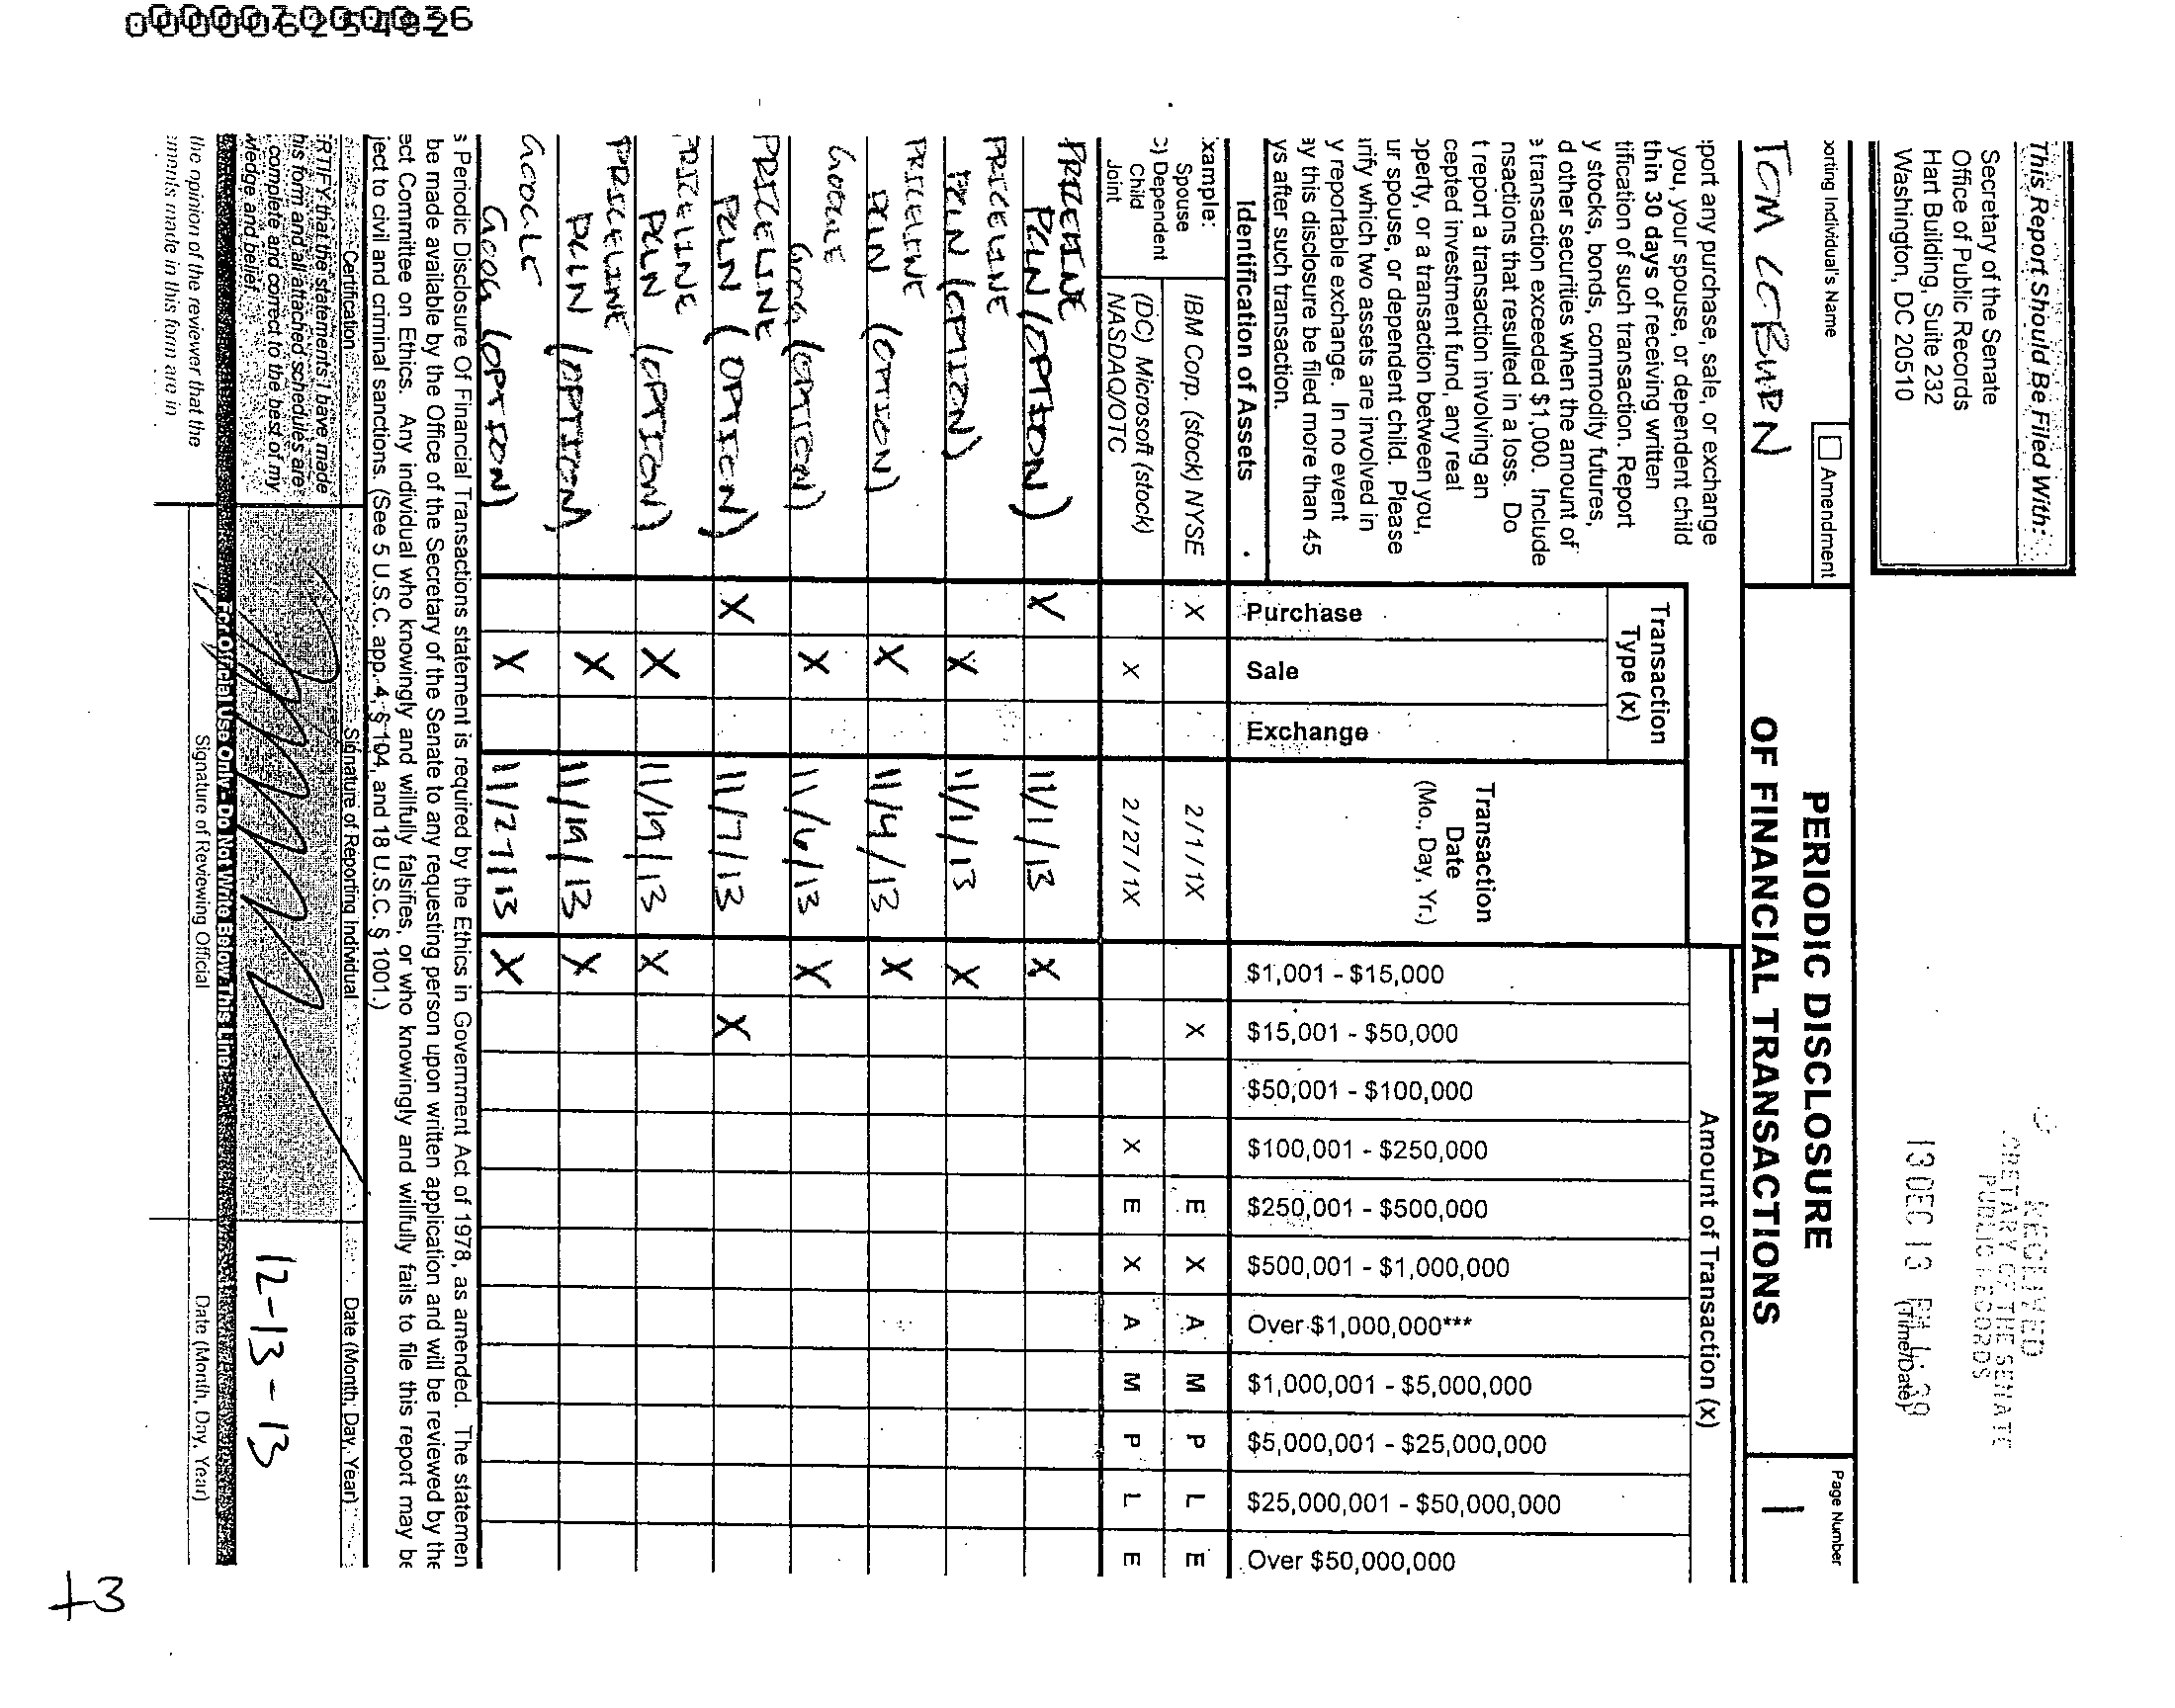 This Report Should Be Filed With:
Secretary of the Senate
Office of Public Records
Hart Building, Suite 232
Washington, DC 20510
RECEIVED
CRETARY OF THE SENATE
PUBLIC RECORDS
13 DEC 13 PM
(Time/Date)
orting Individual's Name
Amendment
TOM COBURN
PERIODIC DISCLOSURE
OF FINANCIAL TRANSACTIONS
Page Number
1
port any purchase, sale, or exchange
you, your spouse, or dependent child
y stocks, bonds, commodity futures,
d other securities when the amount of
e transaction exceeded $1,000. Include
nsactions that resulted in a loss. Do
t report a transaction involving an
cepted investment fund, any real
operty, or a transaction between you,
ur spouse, or dependent child. Please
rify which two assets are involved in
y reportable exchange. In no event
ay this disclosure be filed more than 45
ys after such transaction.
thin 30 days of receiving written
tification of such transaction. Report
Identification of Assets
Transaction
Type (x)
Purchase
Sale
Exchange
Transaction
Date
(Mo., Day, Yr.)
Amount of Transaction (x)
$1,001 - $15,000
$15,001 - $50,000
$50,001 - $100,000
$100,001 - $250,000
$250,001 - $500,000
$500,001 - $1,000,000
Over $1,000,000***
$1,000,001 - $5,000,000
$5,000,001 - $25,000,000
$25,000,001 - $50,000,000
Over $50,000,000
xample:
Spouse
) Dependent
Child
Joint
IBM Corp. (stock) NYSE X 2/1/1X X E X A M P L E
(DC) Microsoft (stock)
NASDAQ/OTC X 2/27/1X X E X A M P L E
PRICELINE
PCLN (OPTION) X 11/1/13 X
PRICELINE
PCLN (OPTION) X 11/1/13 X
PRICELINE
PCLN (OPTION) X 11/4/13 X
GOOGLE
GOOG (OPTION) X 11/6/13 X
PRICELINE
PCLN (OPTION) X 11/7/13 X
PRICELINE
PCLN (OPTION) X 11/19/13 X
PRICELINE
PCLN (OPTION) X 11/19/13 X
GOOGLE
GOOG (OPTION) X 11/27/13 X
s Periodic Disclosure Of Financial Transactions statement is required by the Ethics in Government Act of 1978, as amended. The statemen
be made available by the Office of the Secretary of the Senate to any requesting person upon written application and will be reviewed by the
ect Committee on Ethics. Any individual who knowingly and willfully falsifies, or who knowingly and willfully fails to file this report may be
ject to civil and criminal sanctions. (See 5 U.S.C. app. 4, § 104, and 18 U.S.C. § 1001.)
Certification
Signature of Reporting Individual
Date (Month, Day, Year)
RTIFY that the statements I have made
his form and all attached schedules are
complete and correct to the best of my
wledge and belief.
12-13-13
For Official Use Only - Do Not Write Below This Line
the opinion of the reviewer that the
ements made in this form are in
Signature of Reviewing Official
Date (Month, Day, Year)